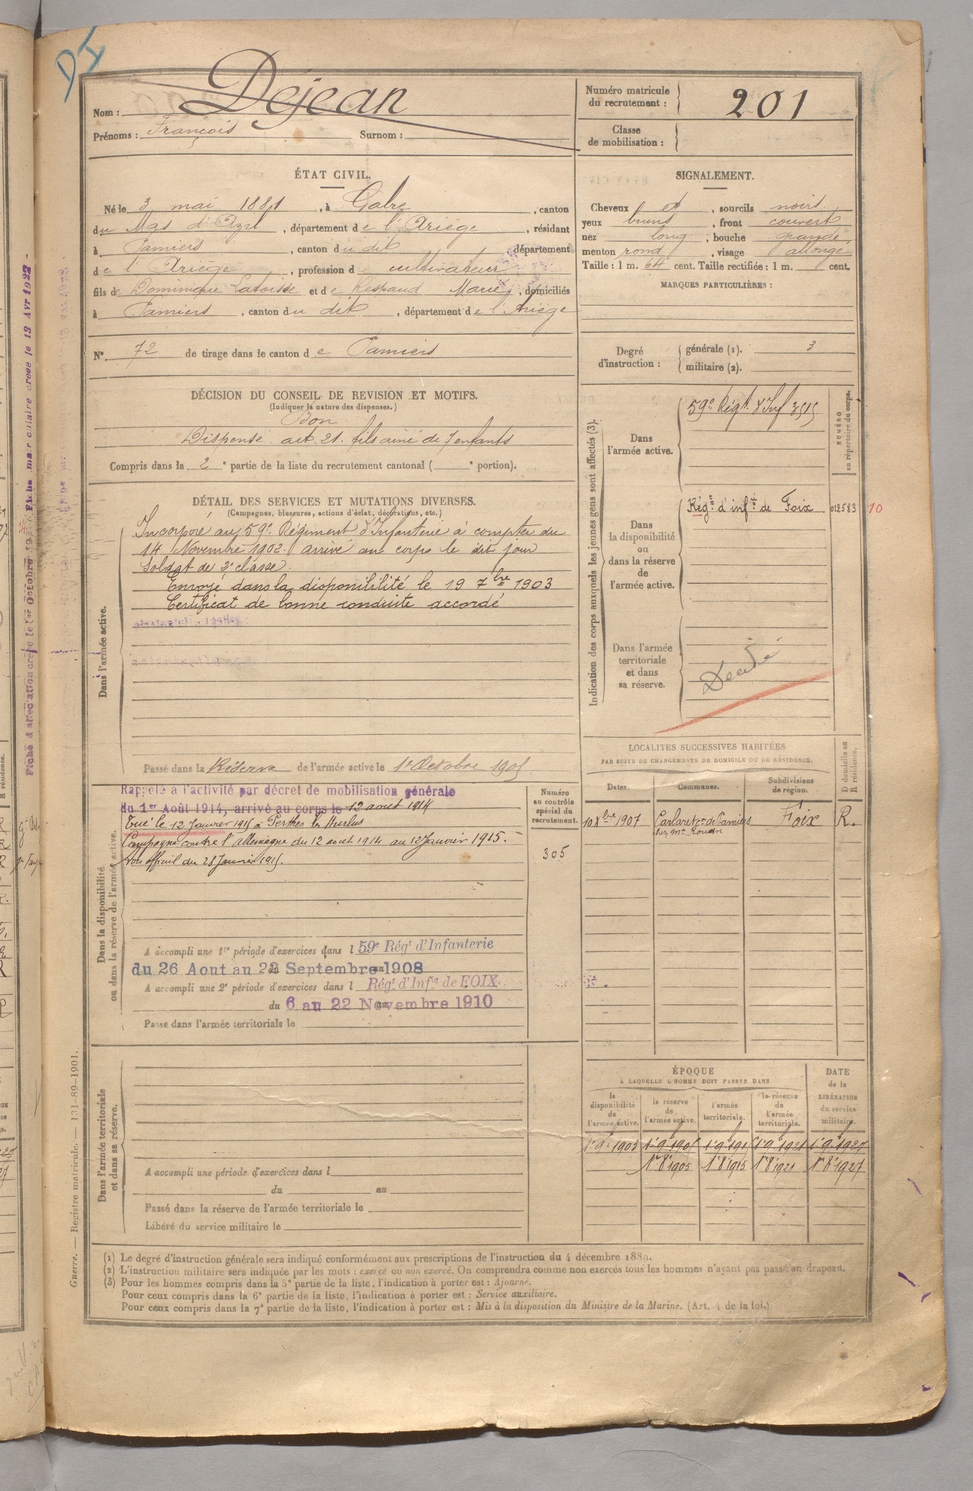 DI
Nom : Déjean
Prénoms : François Surnom :
Numéro matricule du recrutement : 201
Classe de mobilisation :
ÉTAT CIVIL.
Né le 3 mai 1881, à Gabre, canton
du Mas d'Azil, département de l'Ariège, résidant
à Pamiers, canton du dit département
de l'Ariège, profession de cultivateur
fils de Dominique et de Marie, domiciliés
à Pamiers, canton du dit, département de l'Ariège
N° 72 de tirage dans le canton de Pamiers
SIGNALEMENT.
Cheveux et, sourcils noirs
yeux bruns, front couvert
nez long, bouche grande
menton rond, visage allongé
Taille : 1 m. 64 cent. Taille rectifiée : 1 m. cent.
MARQUES PARTICULIÈRES :
Degré d'instruction : générale (1). 3
militaire (2).
DÉCISION DU CONSEIL DE REVISION ET MOTIFS.
(Indiquer la nature des dispenses.)
Bon
Dispensé art. 21. fils ainé de 7 enfants
Compris dans la 2e partie de la liste du recrutement cantonal ( e portion).
DÉTAIL DES SERVICES ET MUTATIONS DIVERSES.
(Campagnes, blessures, actions d'éclat, décorations, etc.)
Dans l'armée active.
Incorporé au 59e Régiment d'Infanterie à compter du
14 Novembre 1902. arrivé au corps le dit jour
Soldat de 2e classe.
Envoyé dans la disponibilité le 19 7bre 1903
Certificat de bonne conduite accordé
Passé dans la Réserve de l'armée active le 1er Octobre 1905
Indication des corps auxquels les jeunes gens sont affectés (3).
NUMÉRO au répertoire du corps.
Dans l'armée active.
59e Régt d'Inf 3515
Dans la disponibilité ou dans la réserve de l'armée active.
Régt d'infie de Foix 012583 10
Dans l'armée territoriale et dans sa réserve.
Décédé
LOCALITÉS SUCCESSIVES HABITÉES
PAR SUITE DE CHANGEMENTS DE DOMICILE OU DE RÉSIDENCE.
Dates. Communes. Subdivisions de région. D domicile ou R résidence.
10 Xbre 1907 Carlaret cn de Pamiers Foix R.
Dans la disponibilité ou dans la réserve de l'armée active.
Numéro au contrôle spécial du recrutement.
305
Rappelé à l'activité par décret de mobilisation générale
du 1er Août 1914, arrivé au corps le 12 aout 1914
Tué le 12 Janvier 1915 à Perthes les Hurlus
Campagne contre l'allemagne du 12 aout 1914 au 12 Janvier 1915.
Avis officiel du 28 Janvier 1915.
A accompli une 1re période d'exercices dans l 59e Régt d'Infanterie
du 26 Aout au 22 Septembre 1908
A accompli une 2e période d'exercices dans l Régt d'Infie de FOIX.
du 6 au 22 Novembre 1910
Passé dans l'armée territoriale le
Dans l'armée territoriale et dans sa réserve.
A accompli une période d'exercices dans l
du au
Passé dans la réserve de l'armée territoriale le
Libéré du service militaire le
ÉPOQUE
À LAQUELLE L'HOMME DOIT PASSER DANS
DATE de la LIBÉRATION du service militaire.
la disponibilité de l'armée active. la réserve de l'armée active. l'armée territoriale. la réserve de l'armée territoriale.
1.9.1903 1.9.1905 1.9.1915 1.9.1921 1.9.1927
1er 8 1905 1er 8 1915 1er 8 1921 1er 8 1927
(1) Le degré d'instruction générale sera indiqué conformément aux prescriptions de l'instruction du 4 décembre 1889.
(2) L'instruction militaire sera indiquée par les mots : exercé ou non exercé. On comprendra comme non exercés tous les hommes n'ayant pas passé au drapeau.
(3) Pour les hommes compris dans la 5e partie de la liste, l'indication à porter est : Ajourné.
Pour ceux compris dans la 6e partie de la liste, l'indication à porter est : Service auxiliaire.
Pour ceux compris dans la 7e partie de la liste, l'indication à porter est : Mis à la disposition du Ministre de la Marine. (Art. 4 de la loi.)
Guerre. — Registre matricule. — 131-89-1901.